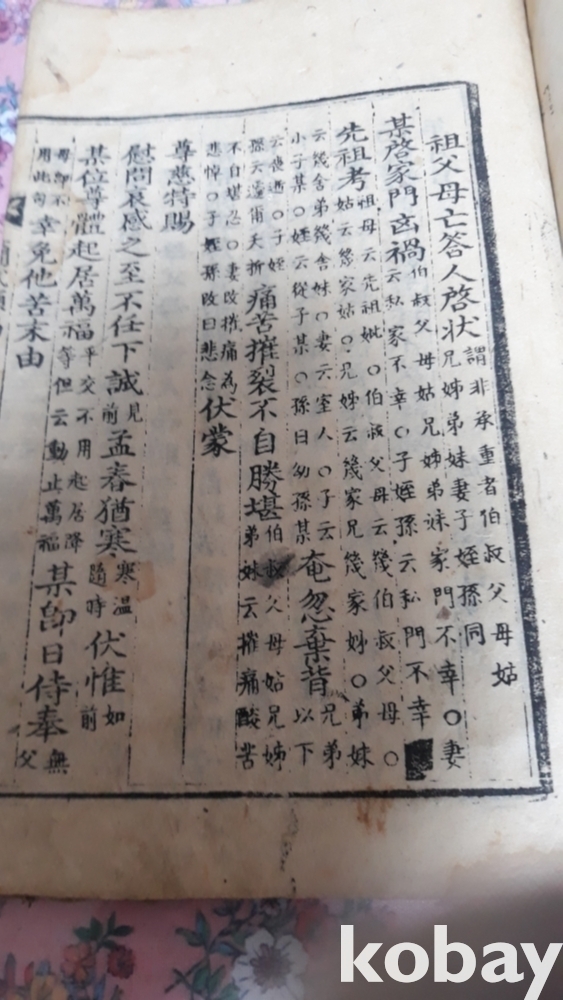 祖父母亡答人啓状謂非承重者伯叔父母姑兄姊弟妹妻子姪孫同
某啓家門凶禍伯叔父母姑兄姊弟妹家門不幸○妻云私家不幸○子姪孫云私門不幸
先祖考祖母云先祖妣○伯叔父母云幾伯叔父母○姑云幾家姑○兄姊云幾家兄幾家姊○弟妹
云幾舍弟幾舍妹○妻云室人○子云小子某○姪云從子某○孫曰幼孫某奄忽棄背兄弟以下
云喪逝○子姪孫云遽爾夭折痛苦摧裂不自勝堪伯叔父母姑兄姊弟妹云摧痛酸苦
不自堪忍○妻改摧痛為悲悼○子姪孫改曰悲念伏蒙
尊慈特賜
慰問哀感之至不任下誠見前孟春猶寒寒温隨時伏惟如前
某位尊體起居萬福平交不用起居降等但云動止萬福某即日侍奉無父
母即不用此句幸免他苦末由
kobay